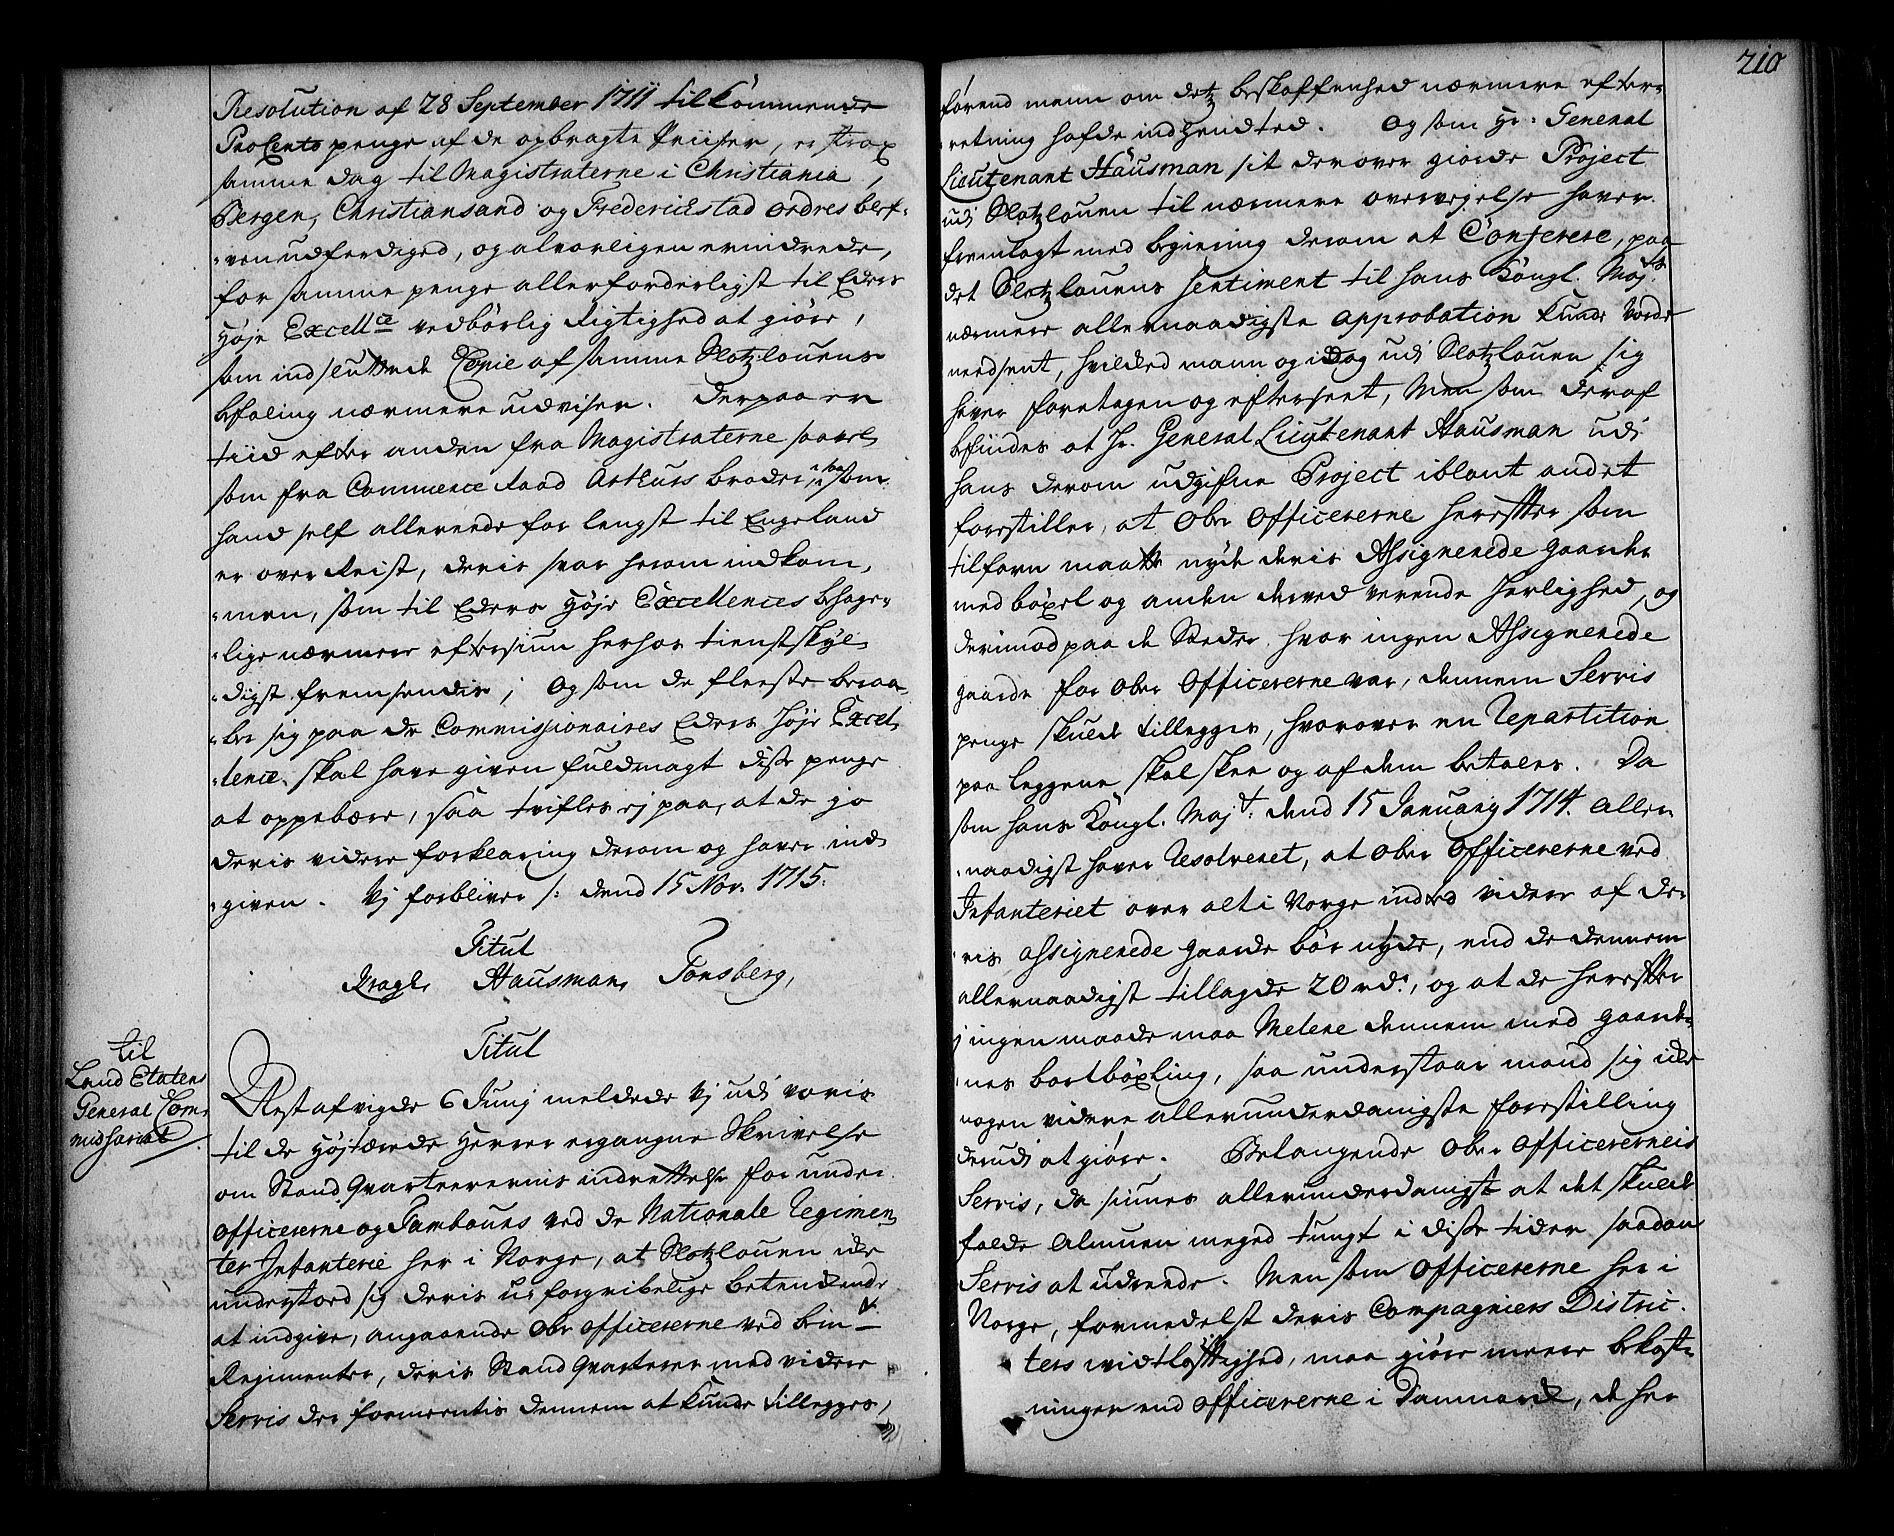 Resolution af 28 September 1711 tilkommende
ProCento penge af de opbragte Priiser, er strax
samme dag til Magistraterne i Christiania,
Bergen, Christiansand og Frederichstad ordres blef-
ven udferdiged, og alvorligen erindrede,
for samme penge allerforderligst til Eders
Høje Excellce vedbørlig Rigtighed at giøre,
som indsluttede Copie af samme Slotzlovens
befaling nærmere udviser. Derpaa er
tiid efter anden fra Magistraterne saavel
som fra Commerce Raad Arthurs broder, saasom
hand self allereede for lengst til Engeland
er over Reist, deris svar herom indkom-
men, som til Eders Høje Excellences behage-
lige nærmere eftersiun herhos tienstskyl-
digst fremsendis; Og som de fleeste beraa-
ber sig paa de Commissionaires Eders Høje Excel-
lence skal have given fuldmagt disse penge
at oppebære, saa tvifles ej paa, at de jo
deris videre forklaring derom og haver ind-
given. Vj forbliver /: dend 15 Nov. 1715.
Titul
Kragh, Hausman, Tonsberg,
til
Land Etatens
General Com-
missariat
Titul
Nest afvigde 6 Junj meldede Vj udi voris
til de Højtærede Herrer ergangne Skrivelse
om Stand Qvarteerernis indrettelse for under
officererne og Tambours ved de Nationale Regimen-
ter Infanterie her i Norge, at Slotzloven icke
understoed sig deris uforgribelige betenckende
at indgive, angaaende Ober officererne ved bem.te
Regimenter, deris Stand Qvarterer med videre
Servis der formeentis dennem at kunde tillegges,
210
førend mann om detz beskaffenhed nærmere efter-
retning hafde indhendted. Og som Hr: General
Lieutenant Hausman sit derover giorde Project
udi Slotzloven til nærmere overvejelse haver
fremlagt med begiering derom at Conferere, paa
det Slotzlovens Sentiment til hans Kongl. Maj.ts
nærmere allernaadigste approbation kunde vorde
nedsent, hvilcked mann og i dag udi Slotzloven sig
haver foretagen og efterseet, Men som deraf
befindes at Hr. General Lieutenant Hausman udi
hans derom udgifne Project iblant andet
forestiller, at Ober officererne herefter som
tilforn maatte nyde deris Assignerede gaarde
med bøxel og anden derved verende Herlighed, og
derimod paa de Steder hvor ingen Assignerede
gaarde for Ober Officererne var, dennem Servis
penge skulde tillegges, hvorover en Repartition
paa Leggene skal skee og af dem betales. Da
som hans Kongl. Maj.t dend 15 Januarij 1714. aller-
naadigst haver Resolveret, at Ober Officererne ved
Infanteriet over alt i Norge inded videre af de-
ris assignerede gaarde bør nyde, end de dennem
allernaadigst tillagde 20 rdr., og at de herefter
j ingen maade maa Melere dennem med gaarde-
nes bortbøxling, saa understaar mand sig icke
nogen videre allerunderdanigste forestilling
derudi at giøre. Belangende Ober Officerernis
Servis, da siunes allerunderdanigst at det skulde
falde Almuen meged tungt i disse tider saadan
Servis at udreede. Men som Officererne her i
Norge, formedelst deris Compagniers Distric-
ters widtløftighed, maa giøre meere bekost-
ninger end Officererne i Danmarck, de her